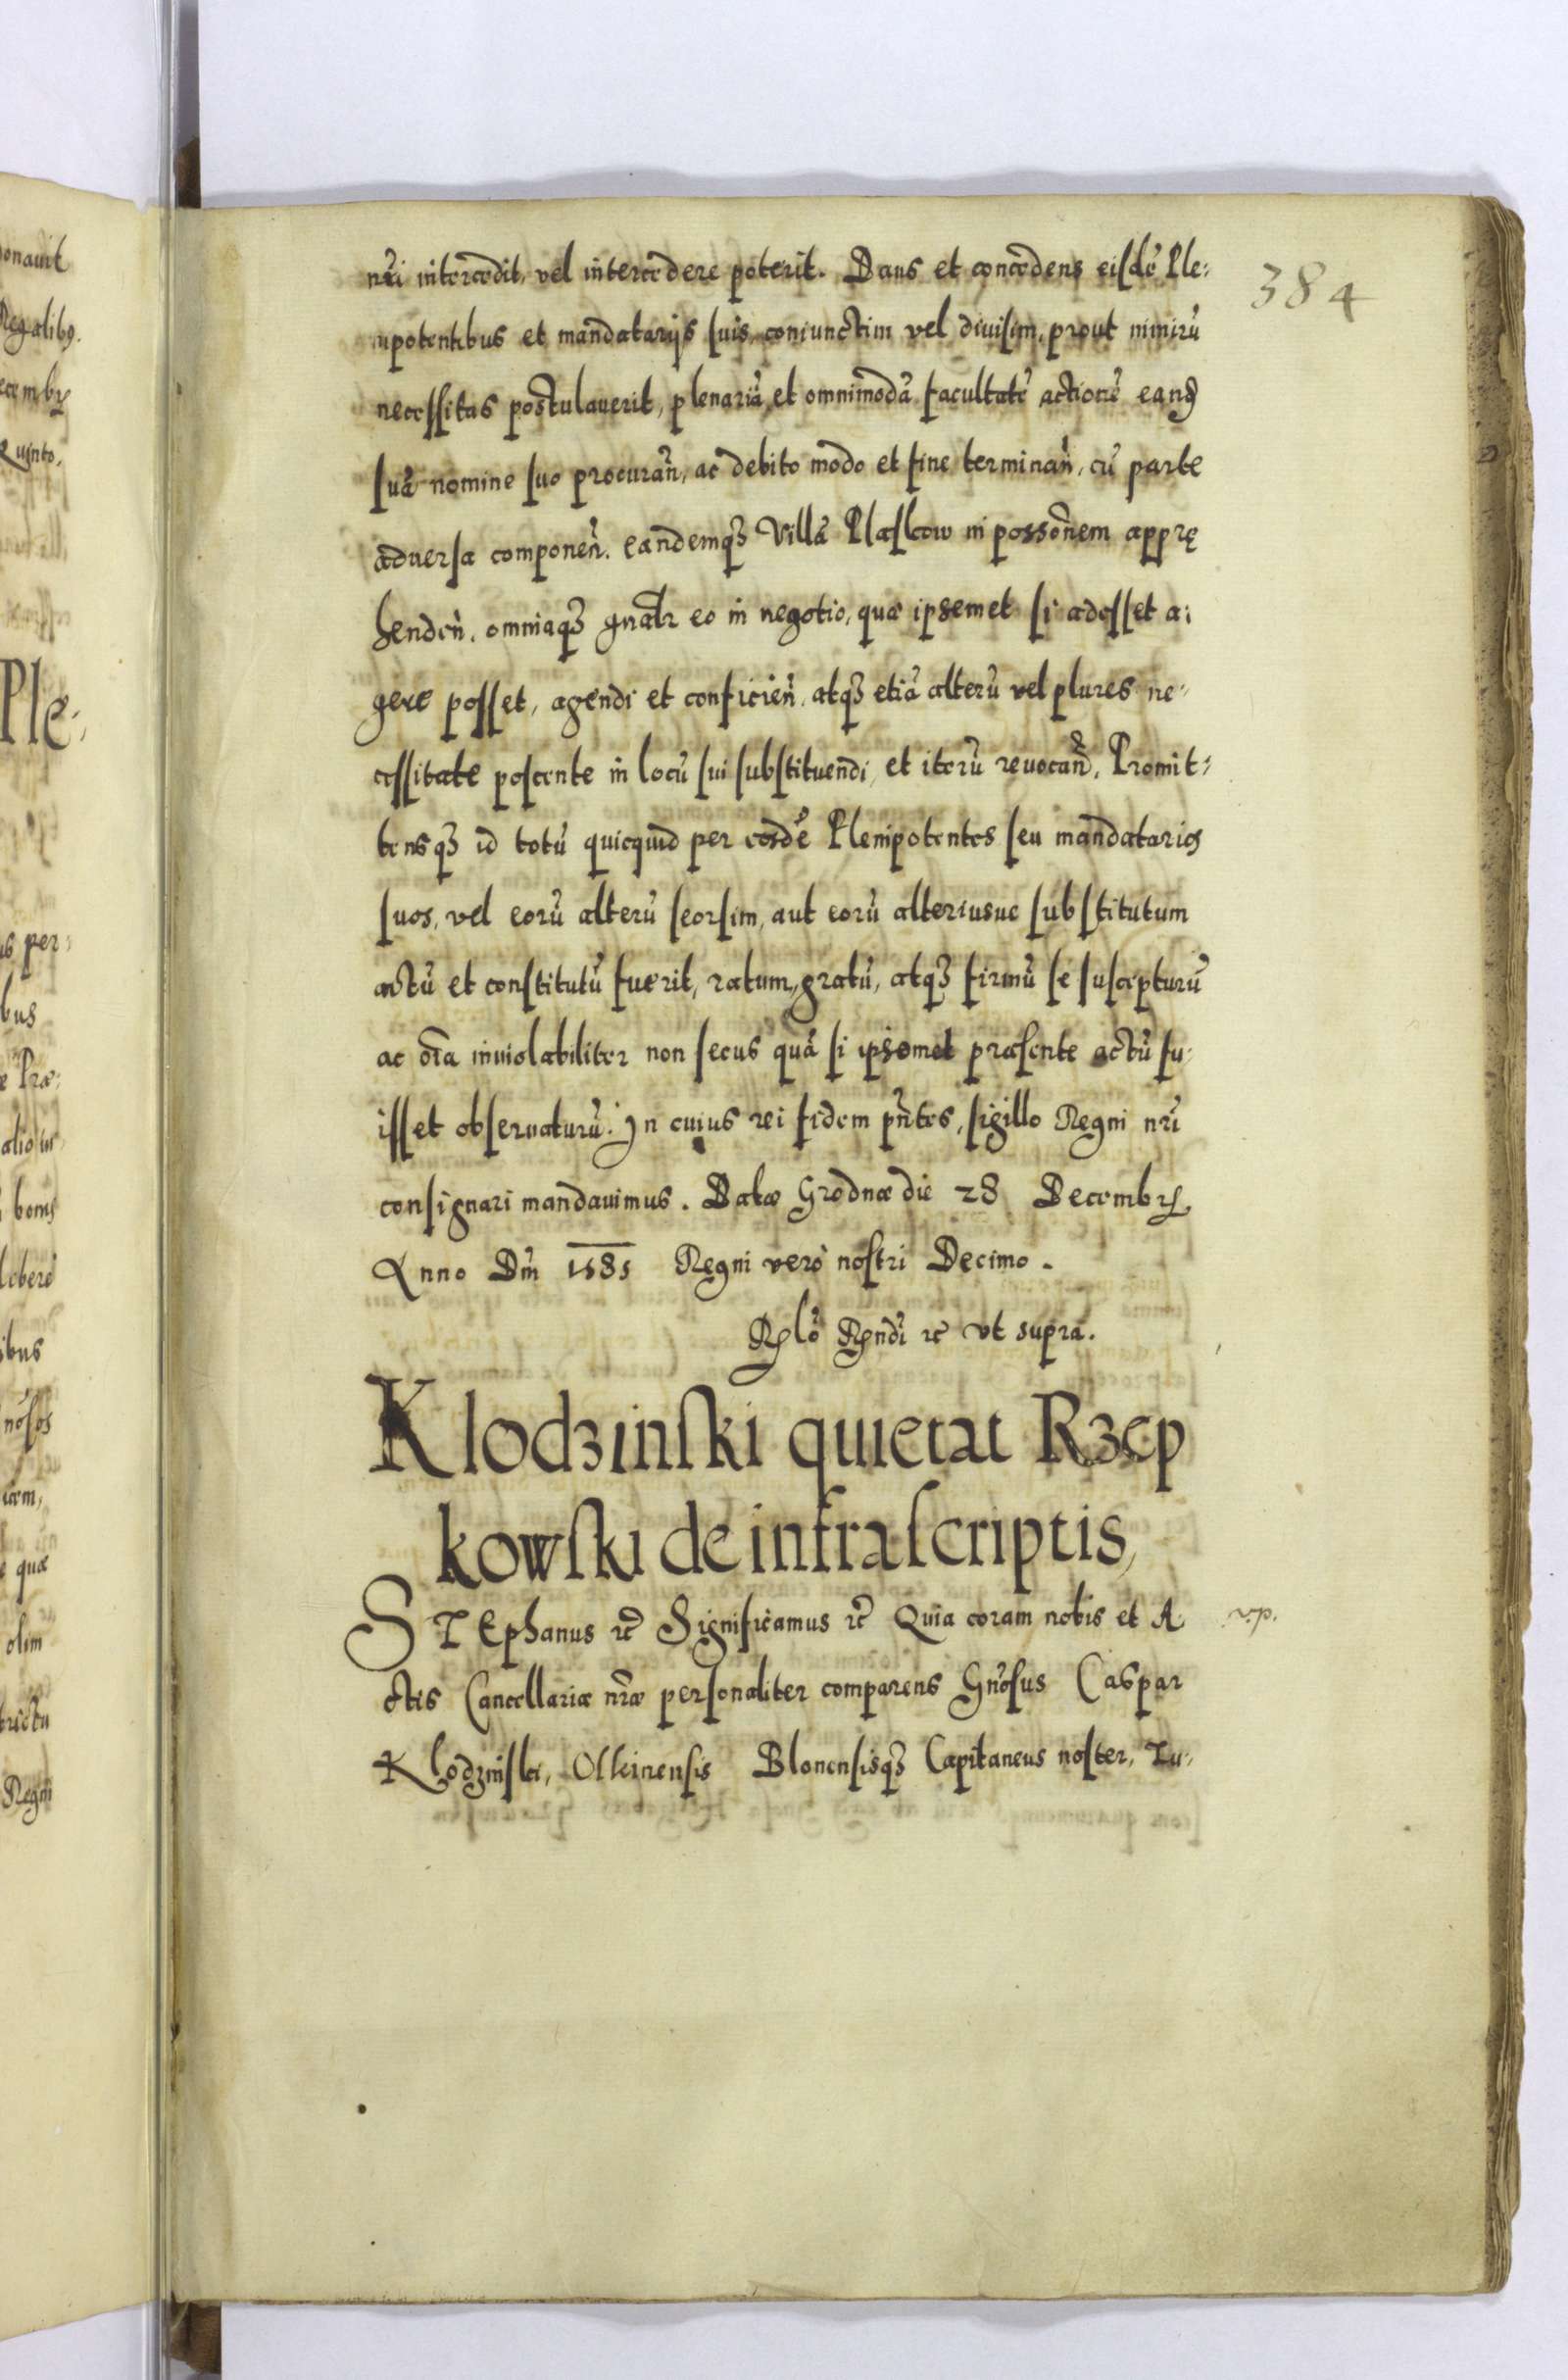 384
nr̃i intercedit, vel intercedere poterit. Dans et concedens eisdẽ Ple:
nipotentibus et mandatarijs suis, coniunctim vel diuisim, prout nimirũ
necessitas postulauerit, plenariã et omnimodã facultatẽ actionẽ eand
suã nomine suo procurañ, ac debito modo et fine terminañ, cũ parte
aduersa componeñ. eandemq3 Villã Plaskow in possonẽm apprę
hendeñ. omniaq3 gnalr eo in negotio, quæ ipsemet si adesset a:
gere posset, agendi et conficieñ. atq3 etiã alterũ vel plures ne:
cessitate poscente in locũ sui substituendi, et iterũ reuocand. Promit:
tensq3 id totũ quicquid per eosdẽ Plenipotentes seu mandatarios
suos, vel eorũ alterũ seorsim, aut eorũ alteriusue substitutum
actũ et constitutũ fuerit, ratum, gratũ, atq3 firmũ se suscepturũ
ac oĩa inuiolabiliter non secus quã si ipsemet præsente actũ fu:
isset obseruaturũ. In cuius rei fidem pñtes, sigillo Regni nr̃i
consignari mandauimus. Datæ Grodnæ die 28 Decembr
Anno Dñi 1585 Regni verò nostri Decimo.
Relõ Rendi rc vt supra.
Klodzinski quietat Rzep
kowski de infrascriptis,
STEphanus rc Significamus rc Quia coram nobis et A
v.p.
ctis Cancellariæ nr̃æ personaliter comparens Gnõsus Caspar
Klodzinski, Olkinensis Blonensisq3 Capitaneus noster, Tu: